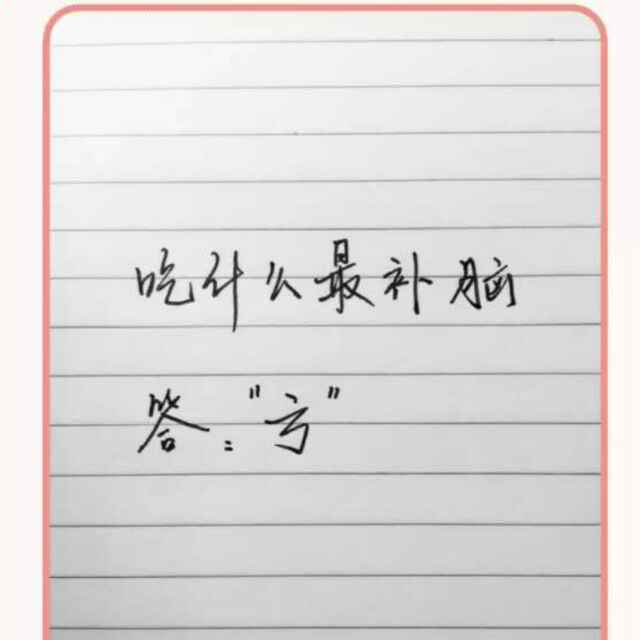 吃什么最补脑
答："亏"